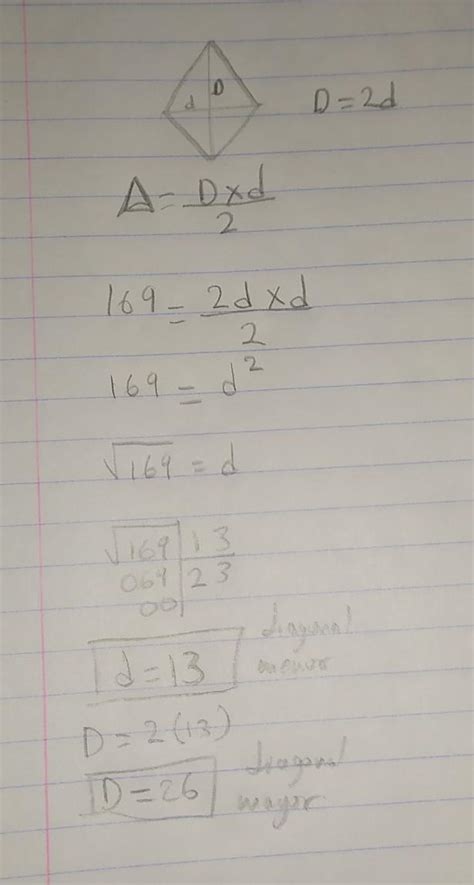 D
d
D = 2d
A = D x d / 2
169 = 2d x d / 2
169 = d²
√169 = d
√169 | 13
069 | 23
00
d = 13 diagonal menor
D = 2(13)
D = 26 diagonal mayor